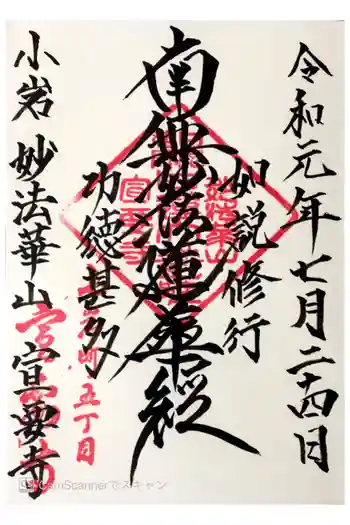 令和元年七月二十四日
如説修行
南無妙法蓮華経
功徳甚多
五丁目
小岩 妙法華山 宣要寺
CamScannerでスキャン